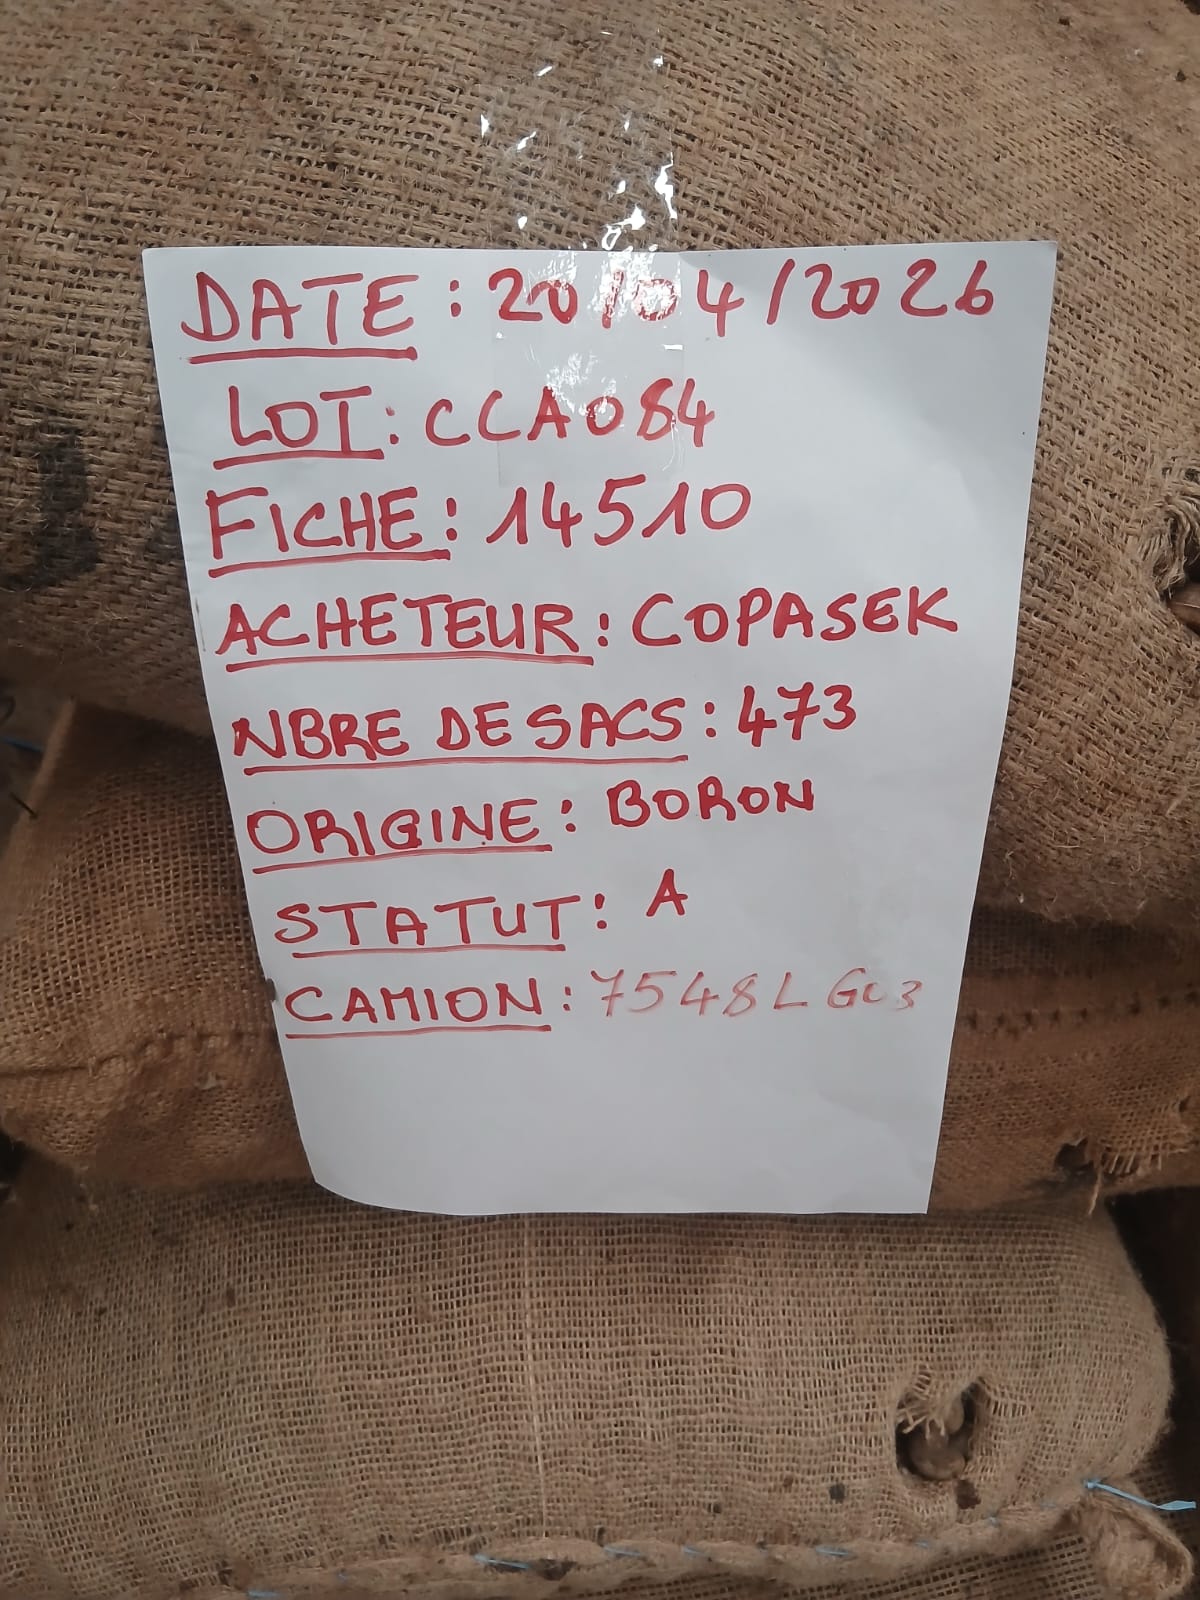 DATE : 20/04/2026
LOT : CCA084
FICHE : 14510
ACHETEUR : COPASEK
NBRE DE SACS : 473
ORIGINE : BORON
STATUT : A
CAMION : 7548L GC3